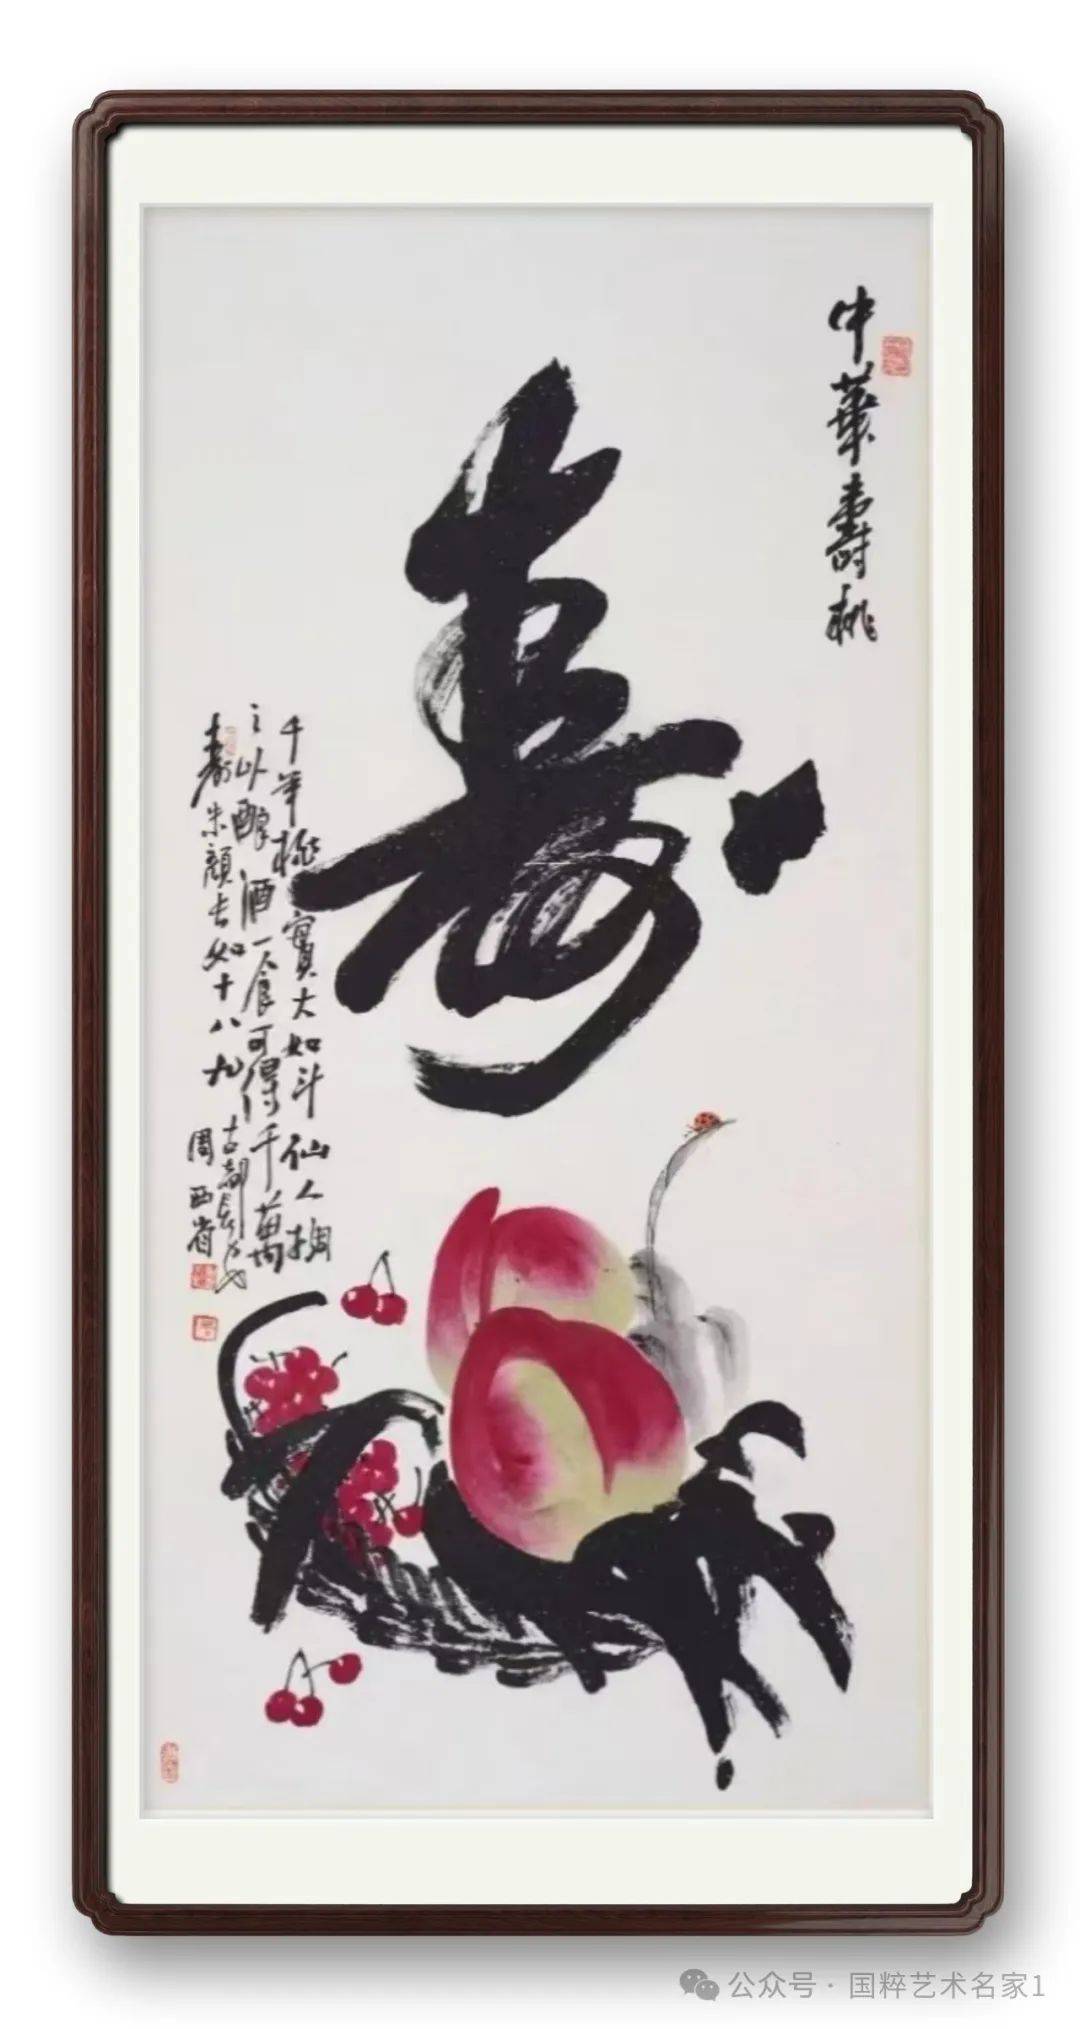 中華壽桃
寿
千年桃實大如斗仙人摘
之以釀酒一食可得千萬
壽朱顏長如十八九
古都長安
周西省
公众号 · 国粹艺术名家1